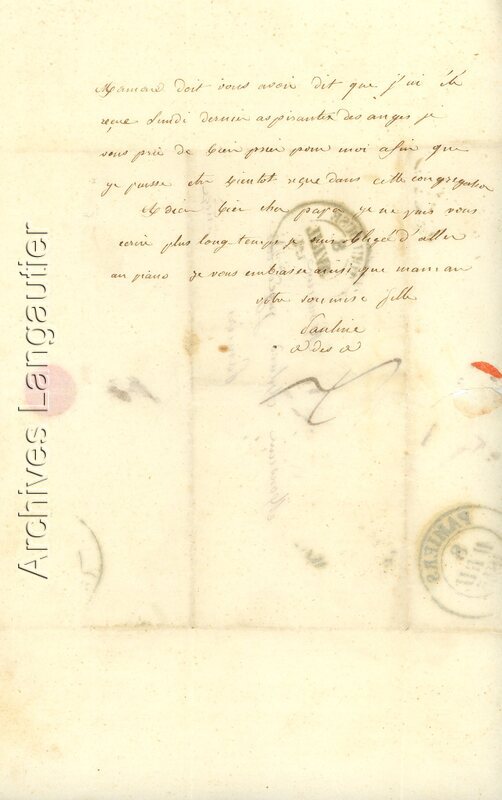 Maman doit vous avoir dit que j'ai été
reçue lundi dernier aspirante des anges je
vous prie de bien prier pour moi afin que
je puisse être bientot reçue dans cette congregation
Adieu bien cher papa je ne puis vous
ecrire plus long temps je suis obligée d'aller
au piano je vous embrasse ainsi que maman
votre soumise fille
Pauline
a des a
Archives Langautier
PAMIERS
8